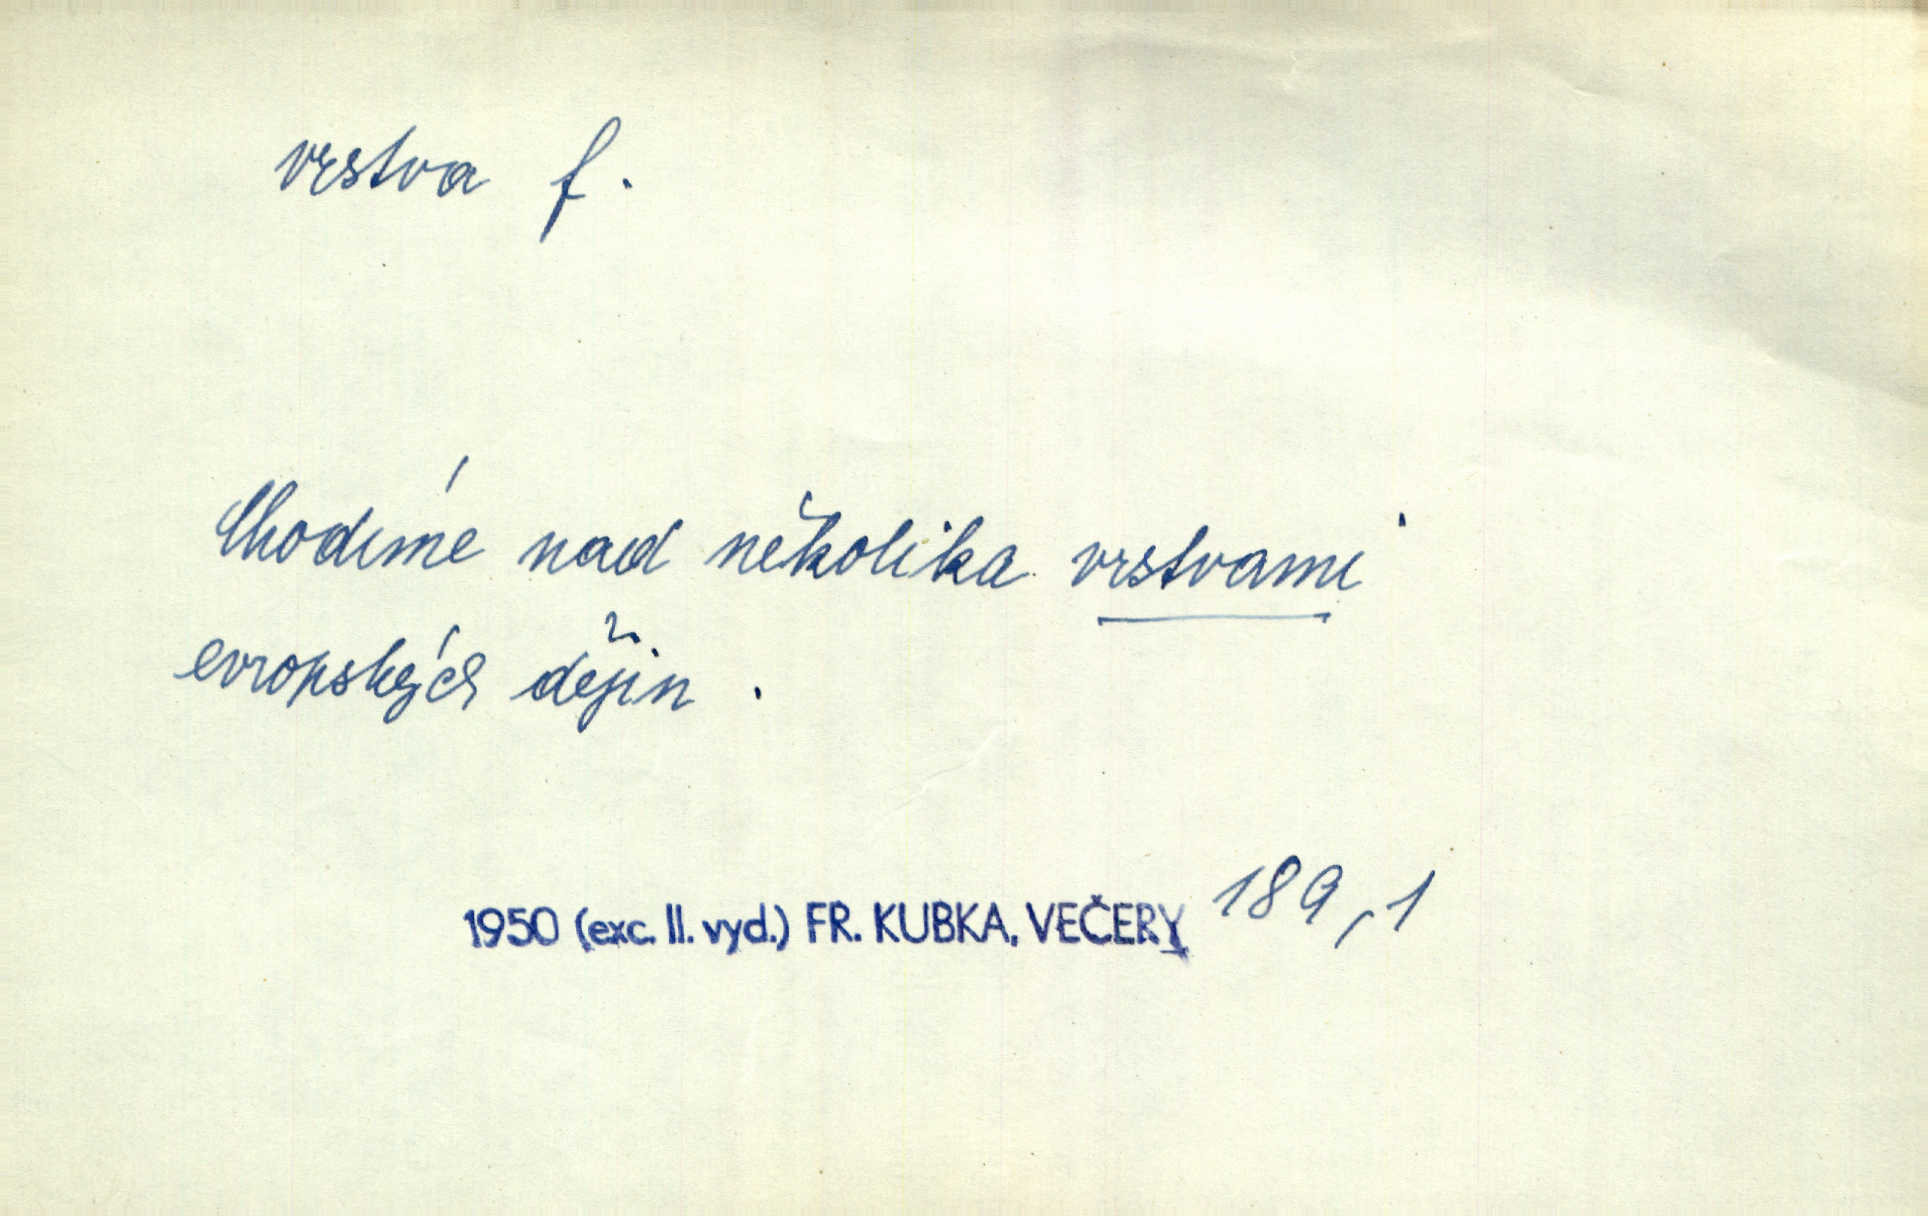 vrstva f.
Chodíme nad několika vrstvami
evropských dějin.
1950 (exc. II. vyd.) FR. KUBKA, VEČERY 189,1